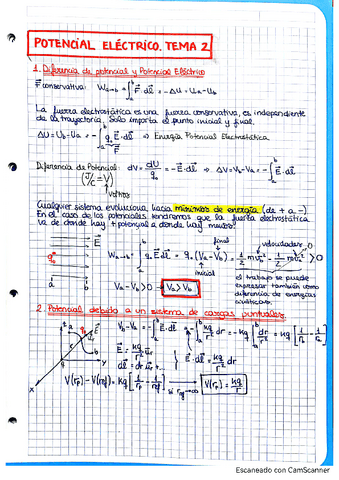 POTENCIAL ELÉCTRICO. TEMA 2
1. Diferencia de potencial y Potencial Eléctrico
F⃗ conservativa: Wₐ→b = ∫ₐᵇ F⃗·dl⃗ = -ΔU = Ua-Ub
La fuerza electrostática es una fuerza conservativa, es independiente
de la trayectoria, solo importa el punto inicial y final.
ΔU = Ub-Ua = -∫ₐᵇ q₀E⃗·dl⃗ ⇒ Energía Potencial Electrostática
Diferencia de Potencial: dV = dU/q₀ = -E⃗·dl⃗ ⇒ ΔV = Vb-Va = -∫ₐᵇ E⃗·dl⃗
(J/C = V)
Voltios
Cualquier sistema evoluciona hacia mínimos de energía (de + a -)
En el caso de los potenciales tendremos que la fuerza electrostática
va de donde hay + potencial a donde hay menos.
final
velocidades 0
E⃗
a q₀ b
Wₐ→b = ∫ₐᵇ q₀E⃗·dl⃗ = q₀(Va-Vb) = ½mvb² - ½mva² > 0
inicial
el trabajo se puede
expresar también como
diferencia de energías
cinéticas.
Va-Vb > 0 → Va > Vb
2. Potencial debido a un sistema de cargas puntuales
Vb-Va = -∫ₐᵇ E⃗·dl⃗ = -∫ₐᵇ kq/r² dr = -kq∫ₐᵇ dr/r² = kq[1/rb - 1/ra]
E⃗ = kq/r² u⃗r
dl⃗ = dr u⃗r + ...
E⃗·dl⃗ = kq/r² dr
V(rp) - V(rref) = kq[1/rp - 1/rref] si rref→∞ V(rp) = kq/r
Escaneado con CamScanner